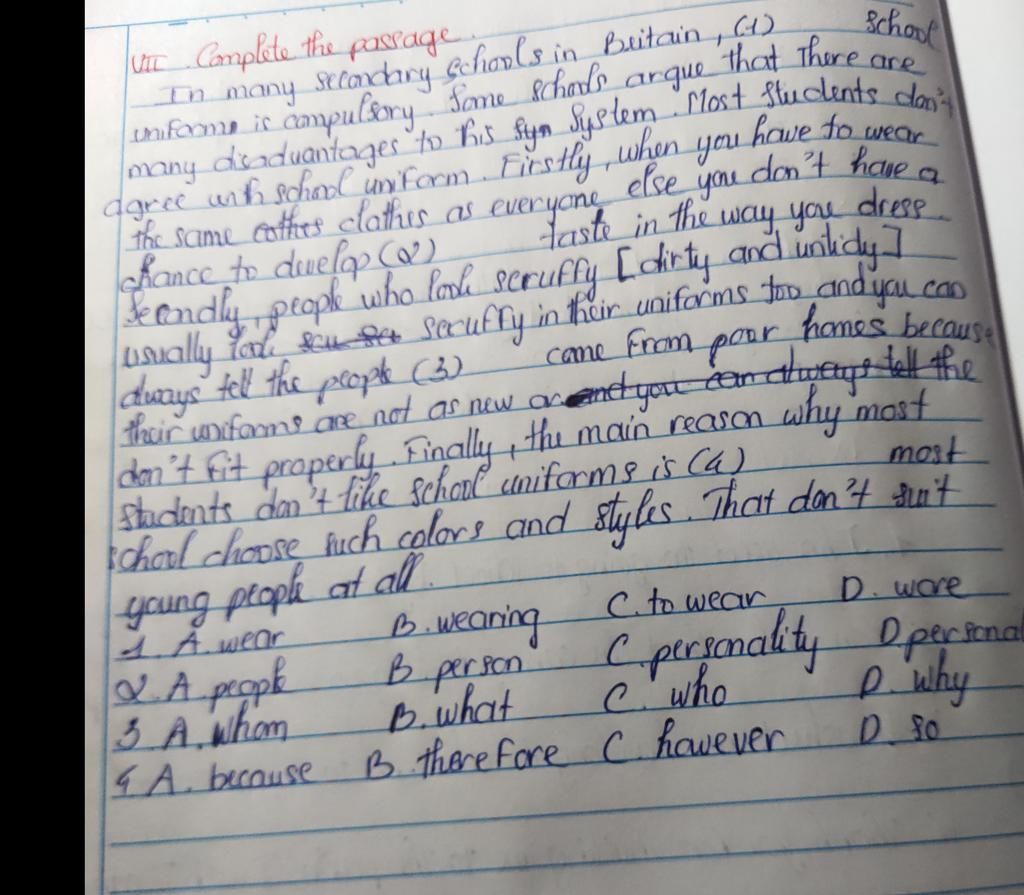 VII. Complete the passage.
In many secondary schools in Britain, (1) school
uniforms is compulsory. Some schools argue that There are
many disaduantages to this syn system. Most students don't
agree with school uniform. Firstly, when you have to wear
the same cothes clothes as everyone else you don't have a
chance to develop (2) taste in the way you dress
Secondly, people who look scruffy [dirty and untidy]
usually look scu scr scruffy in their uniforms too and you can
always tell the people (3) come From poor homes because
their uniforms are not as new or and you can always tell the
don't fit properly. Finally, the main reason why most
students don't like school uniforms is (4) most
school choose such colors and styles. That don't suit
young people at all.
1 A. wear B. wearing C. to wear D. wore
2. A. people B. person C. personality D. personal
3. A. whom B. what C. who D. why
4 A. because B. therefore C. however D. so